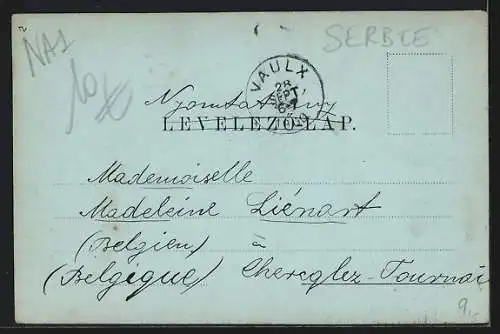 NA1
SERBIE
10
VAULX
28
SEPT
Nyomtatvány
LEVELEZŐ-LAP.
Mademoiselle
Madeleine Liénart
(Belgien) à
(Belgique) Chercqlez-Tournai
9.-